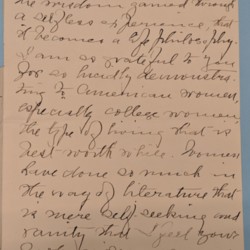 the wisdom gained through
a selfless experience, that
it becomes a philosophy.
I am so grateful to you
for so kindly demonstra
ting to American women,
especially college women,
the type of living that is
best worth while. Women
have done so much in
the way of literature that
is mere self-seeking and
vanity that I feel your